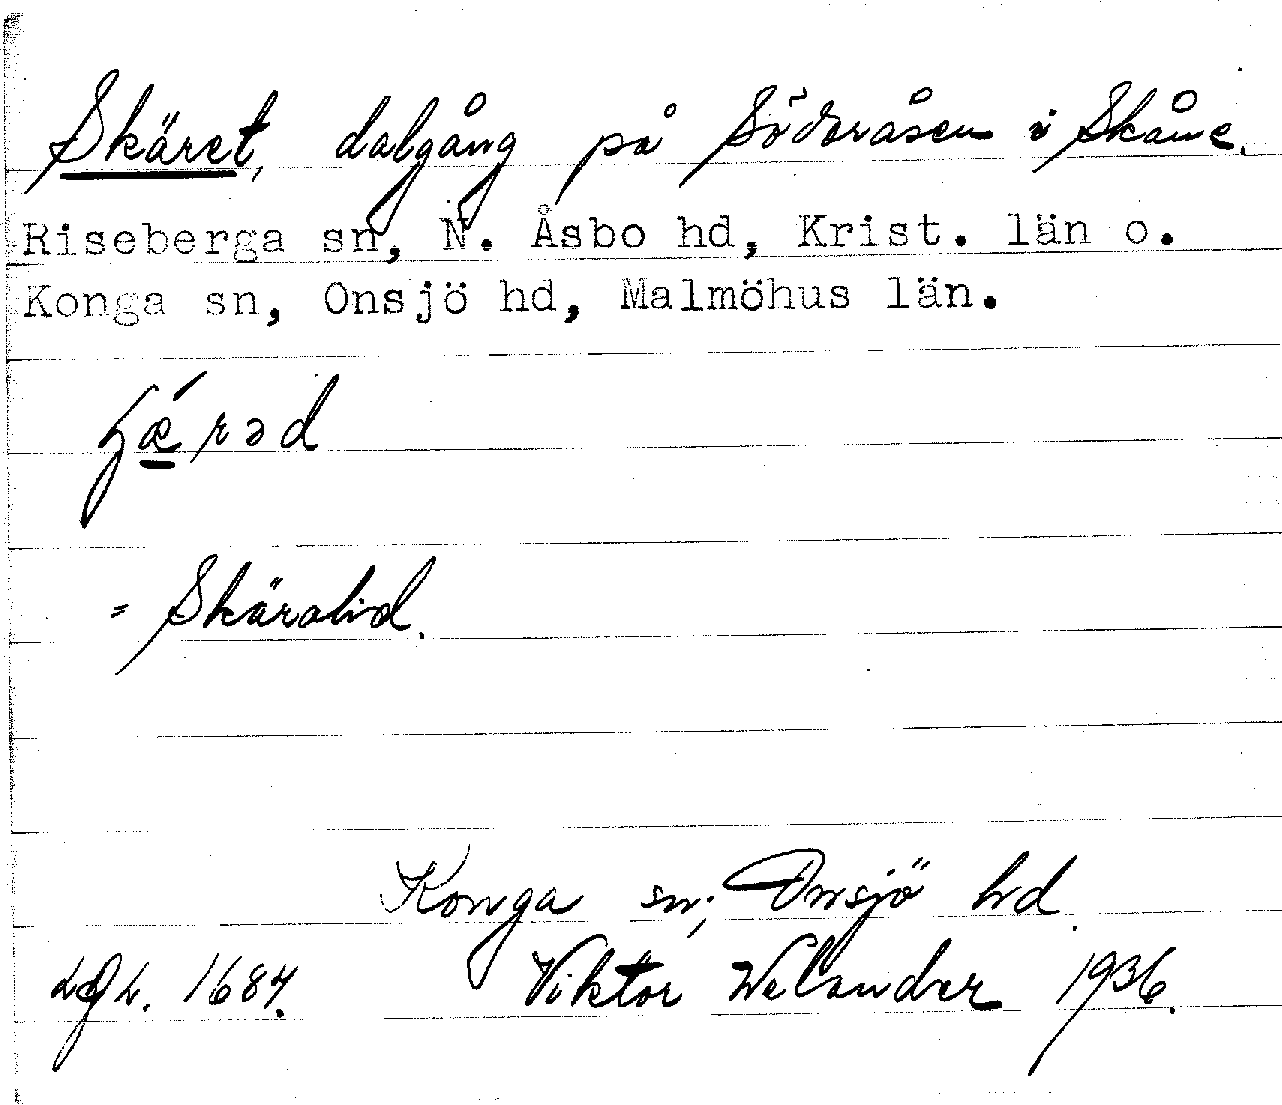 Skäret, dalgång på Söderåsen i Skåne.
Riseberga sn, N. Åsbo hd, Krist. län o.
Konga sn, Onsjö hd, Malmöhus län.
ʃǽrəd
= Skäralid.
Konga sn; Onsjö hd.
LGL. 1687. Viktor Welander 1936.